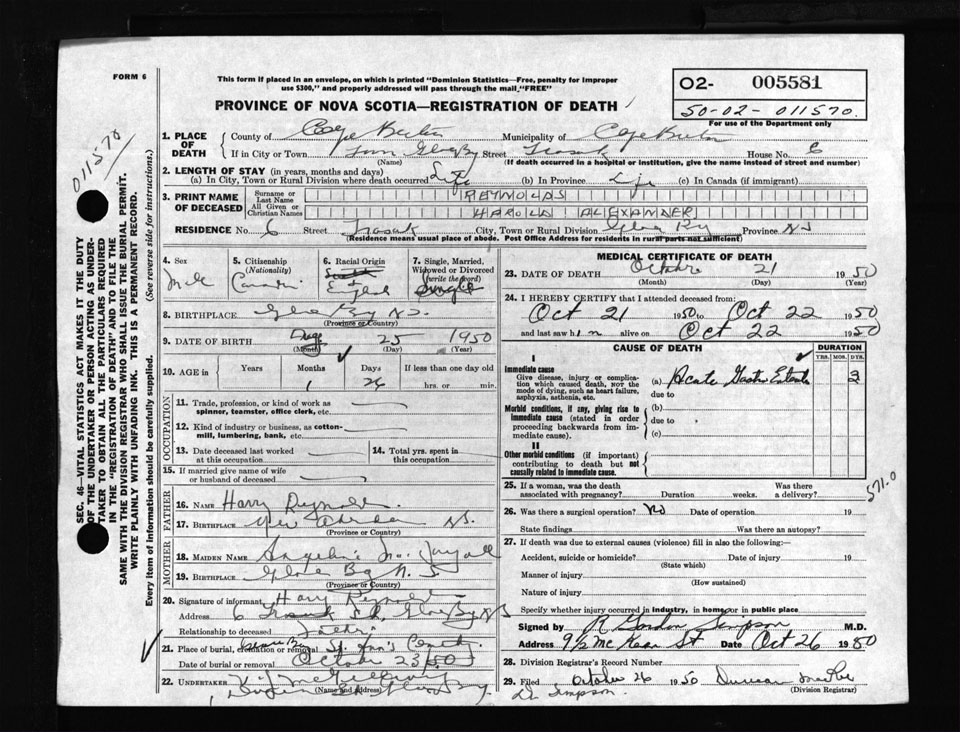 FORM 6
This form if placed in an envelope, on which is printed "Dominion Statistics—Free, penalty for improper
use $300," and properly addressed will pass through the mail, "FREE"
O2- 005581
50-02-011570.
For use of the Department only
PROVINCE OF NOVA SCOTIA—REGISTRATION OF DEATH
011570
SEC. 46—VITAL STATISTICS ACT MAKES IT THE DUTY
OF THE UNDERTAKER OR PERSON ACTING AS UNDER-
TAKER TO OBTAIN ALL THE PARTICULARS REQUIRED
IN THE "REGISTRATION OF DEATH" AND TO FILE THE
SAME WITH THE DIVISION REGISTRAR WHO SHALL ISSUE THE BURIAL PERMIT.
WRITE PLAINLY WITH UNFADING INK. THIS IS A PERMANENT RECORD.
Every item of information should be carefully supplied. (See reverse side for instructions.)
1. PLACE OF DEATH County of Cape Breton Municipality of Cape Breton
If in City or Town Town Glace Bay Street House No. 6
(Name) (If death occurred in a hospital or institution, give the name instead of street and number)
2. LENGTH OF STAY (in years, months and days)
(a) In City, Town or Rural Division where death occurred Life (b) In Province Life (c) In Canada (if immigrant)
3. PRINT NAME OF DECEASED
Surname or Last Name REYNOLDS
All Given or Christian Names HAROLD ALEXANDER
RESIDENCE No. 6 Street City, Town or Rural Division Glace Bay Province N.S
(Residence means usual place of abode. Post Office Address for residents in rural parts not sufficient)
4. Sex Male
5. Citizenship (Nationality) Canadian
6. Racial Origin English
7. Single, Married, Widowed or Divorced (write the word) Single
8. BIRTHPLACE Glace Bay N.S.
(Province or Country)
9. DATE OF BIRTH Aug 25 1950
(Month) (Day) (Year)
10. AGE in Years Months Days If less than one day old
1 26 hrs. or min.
OCCUPATION
11. Trade, profession, or kind of work as
spinner, teamster, office clerk, etc.
12. Kind of industry or business, as cotton-
mill, lumbering, bank, etc.
13. Date deceased last worked at this occupation
14. Total yrs. spent in this occupation
15. If married give name of wife
or husband of deceased
FATHER
16. Name Harry Reynolds
17. Birthplace New Aberdeen N.S.
(Province or Country)
MOTHER
18. Maiden Name
19. Birthplace Glace Bay N.S
(Province or Country)
20. Signature of informant Harry Reynolds
Address 6 St, Glace Bay NS
Relationship to deceased Father
21. Place of burial, cremation or removal Glace Bay St. Ann's
Date of burial or removal October 23/50
22. UNDERTAKER V. J. McGillivray
(Name and address) Glace Bay.
MEDICAL CERTIFICATE OF DEATH
23. DATE OF DEATH October 21 1950
(Month) (Day) (Year)
24. I HEREBY CERTIFY that I attended deceased from:
Oct 21 1950 to Oct 22 1950
and last saw him alive on Oct 22 1950
CAUSE OF DEATH DURATION
YRS. MOS. DYS.
I
Immediate cause
Give disease, injury or compli-
cation which caused death, NOT the
mode of dying, such as heart failure,
asphyxia, asthenia, etc.
(a) Acute Gastro Enteritis
due to
Morbid conditions, if any, giving rise to
immediate cause (stated in order
proceeding backwards from im-
mediate cause).
(b)
due to
(c)
II
Other morbid conditions (if important)
contributing to death but not
causally related to immediate cause.
25. If a woman, was the death associated with pregnancy? Duration weeks. Was there a delivery?
571.0
26. Was there a surgical operation? No Date of operation 19
State findings Was there an autopsy?
27. If death was due to external causes (violence) fill in also the following:—
Accident, suicide or homicide? Date of injury 19
(State which)
Manner of injury
(How sustained)
Nature of injury
Specify whether injury occurred in industry, in home or in public place
Signed by R Gordon Simpson M.D.
Address 9 1/2 McKean St Date Oct 26 1950
28. Division Registrar's Record Number
29. Filed October 26 1950 Duncan
(Division Registrar)
Dr Simpson.